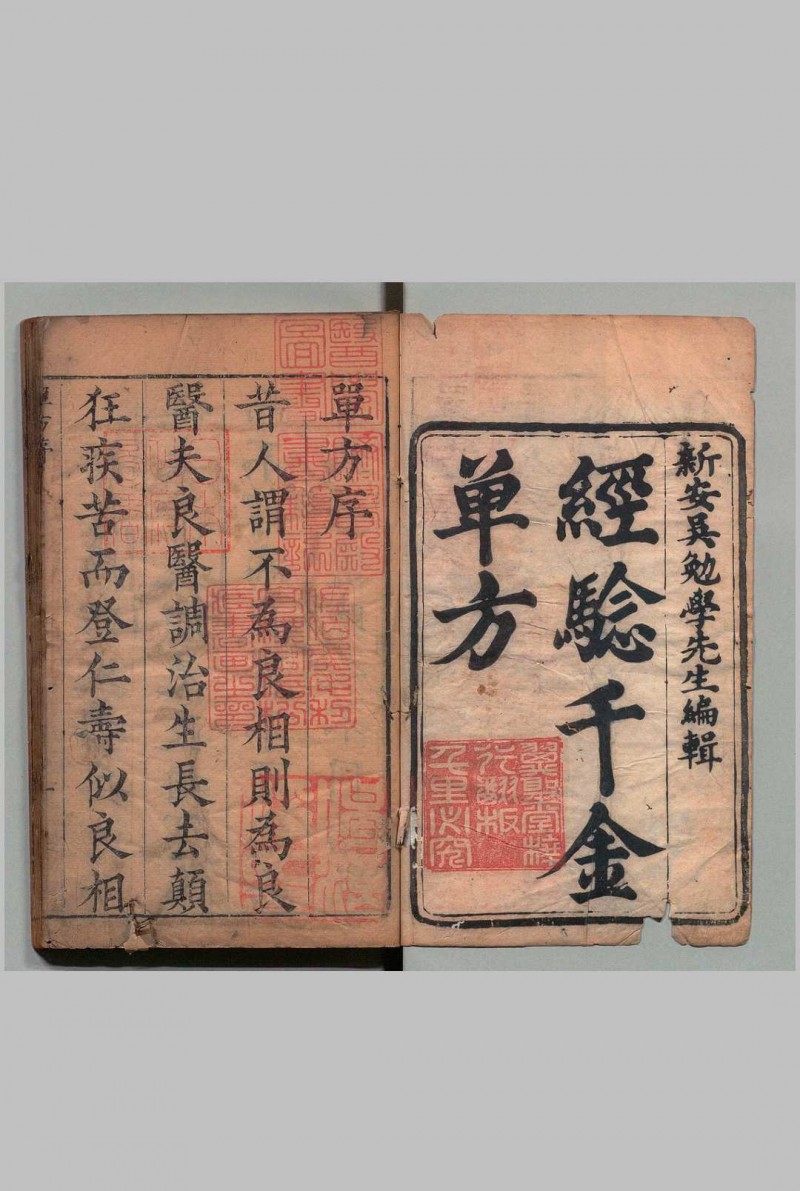 新安吳勉學先生編輯
經驗千金
单方
翼聖堂梓
行翻板
千里必究
單方序
昔人謂不為良相則為良
醫夫良醫調治生長去顛
狂疾苦而登仁壽似良相